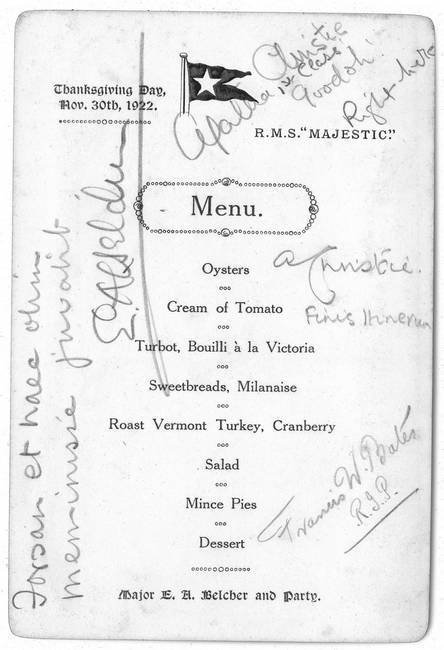 Thanksgiving Day,
Nov. 30th, 1922.
R.M.S. "MAJESTIC."
Agatha Christie
1st Class!
Goodoh!
Right here
Menu.
Oysters
Cream of Tomato
Turbot, Bouilli à la Victoria
Sweetbreads, Milanaise
Roast Vermont Turkey, Cranberry
Salad
Mince Pies
Dessert
Major E. A. Belcher and Party.
A Christie.
Finis Itinerum
Francis W. Bates
R.I.P.
E A Belcher
Forsan et haec olim
meminisse juvabit